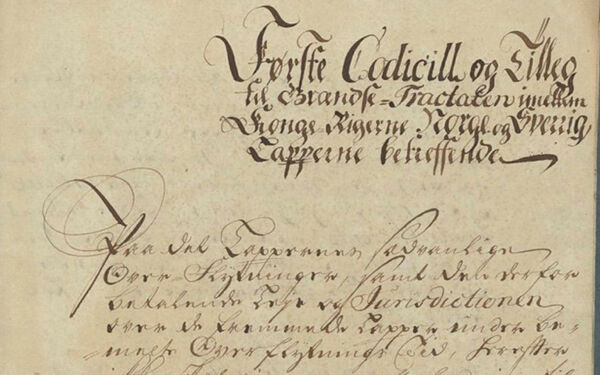 Første Codicill og Tilleg
til Grændse-Tractaten imellem
Konge-Rigerne Norge og Sverrig,
Lapperne betreffende
Paa det Lappernes sædvanlige
Over-Flytninger, samt den derfor
betalende Leje og Jurisdictionen
over de fremmede Lapper under be-
-melte Overflytnings Tid, herefter